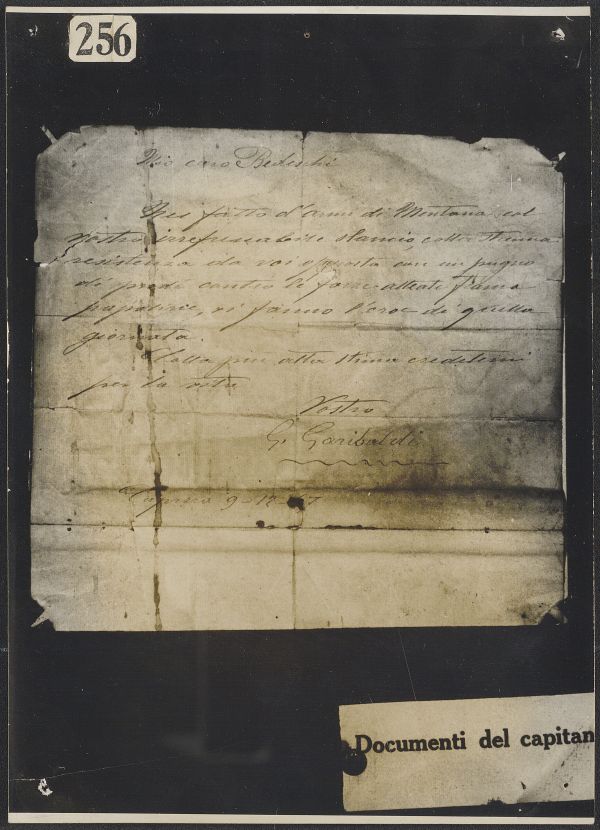 256
Mio caro Bedeschi
Nei fatto d'armi di Mentana col
vostro irrefrenabile slancio colla
resistenza da voi opposta con un pugno
di prodi contro le forze alleate
papaline, vi fanno l'eroe di quella
giornata.
Colla piu alta stima credetemi
per la vita
Vostro
G. Garibaldi
Caprera 9 12 7
Documenti del capitan